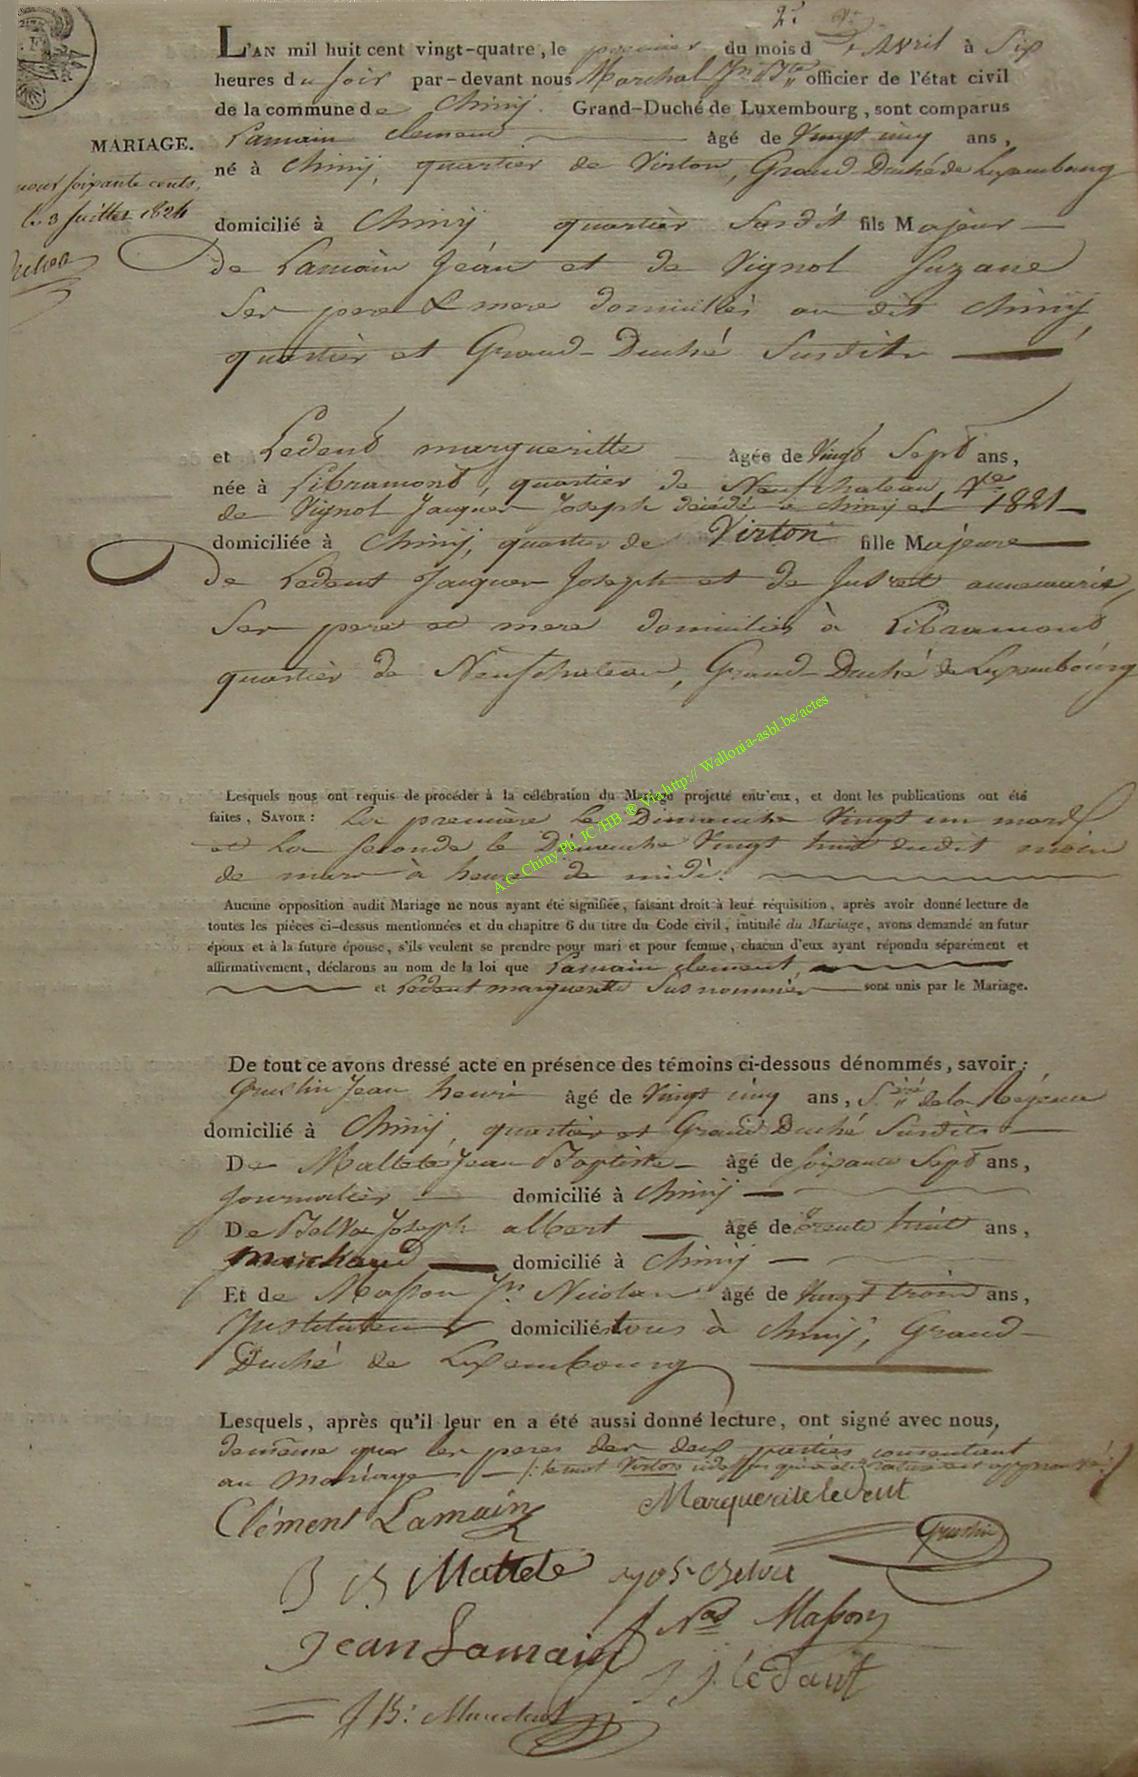 2.e
L'AN mil huit cent vingt-quatre, le premier du mois d'Avril à Six
heures du soir par-devant nous Marchal Jn. Bte. officier de l'état civil
de la commune de Chiny. Grand-Duché de Luxembourg, sont comparus
Lamain clement âgé de Vingt cinq ans,
MARIAGE.
né à Chiny, quartier de Virton, Grand Duché de Luxembourg
soixante cents,
le 3 Juillet 1824
domicilié à Chiny quartier Susdit fils Majeur
de Lamain Jean et de Vignol Suzane
Ses pere & mere domiciliés au dit Chiny
quartier et Grand-Duché Susdits
et Ledent margueritte âgée de Vingt Sept ans,
née à Libramont, quartier de Neufchateau, Ve
de Vignol Jacques Joseph décédé à chiny en 1821
domiciliée à Chiny, quartier de Virton fille Majeure
De Ledent Jacques Joseph et de annemarie,
Ses pere et mere domiciliés à Libramont
quartier de Neufchateau, Grand-Duché de Luxembourg
Lesquels nous ont requis de procéder à la célébration du Mariage projetté entr'eux, et dont les publications ont été
faites, SAVOIR: La premiere le Dimanche Vingt un mars
et La seconde le Dimanche Vingt huit dudit mois
de mars à heure de midi.
Aucune opposition audit Mariage ne nous ayant été signifiée, faisant droit à leur réquisition, après avoir donné lecture de
toutes les pièces ci-dessus mentionnées et du chapitre 6 du titre du Code civil, intitulé du Mariage, avons demandé au futur
époux et à la future épouse, s'ils veulent se prendre pour mari et pour femme, chacun d'eux ayant répondu séparément et
affirmativement, déclarons au nom de la loi que Lamain clement,
et Ledent margueritte Sus nommés sont unis par le Mariage.
De tout ce avons dressé acte en présence des témoins ci-dessous dénommés, savoir:
Grustin Jean henri âgé de Vingt cinq ans, de la Régence
domicilié à Chiny, quartier et Grand Duché Susdits
De Mattete Jean Baptiste âgé de soixante Sept ans,
Journalier domicilié à Chiny
De Belva Joseph albert âgé de trente huit ans,
marchand domicilié à Chiny
Et de Masson Jn. Nicolas âgé de Vingt trois ans,
Instituteur domiciliés tous à Chiny, Grand-
Duché de Luxembourg
Lesquels, après qu'il leur en a été aussi donné lecture, ont signé avec nous,
de même que les peres des deux parties consentant
au mariage /: le mot Virton
Clément Lamain Marguerite leDent
Grustin
J B Mattete Jos. Belva
Nas Masson
Jean Lamain
J. J. leDant
J B: Marchal
A.G. Chiny Ph. JC/HB ® Via http:// Wallonia-asbl.be/actes